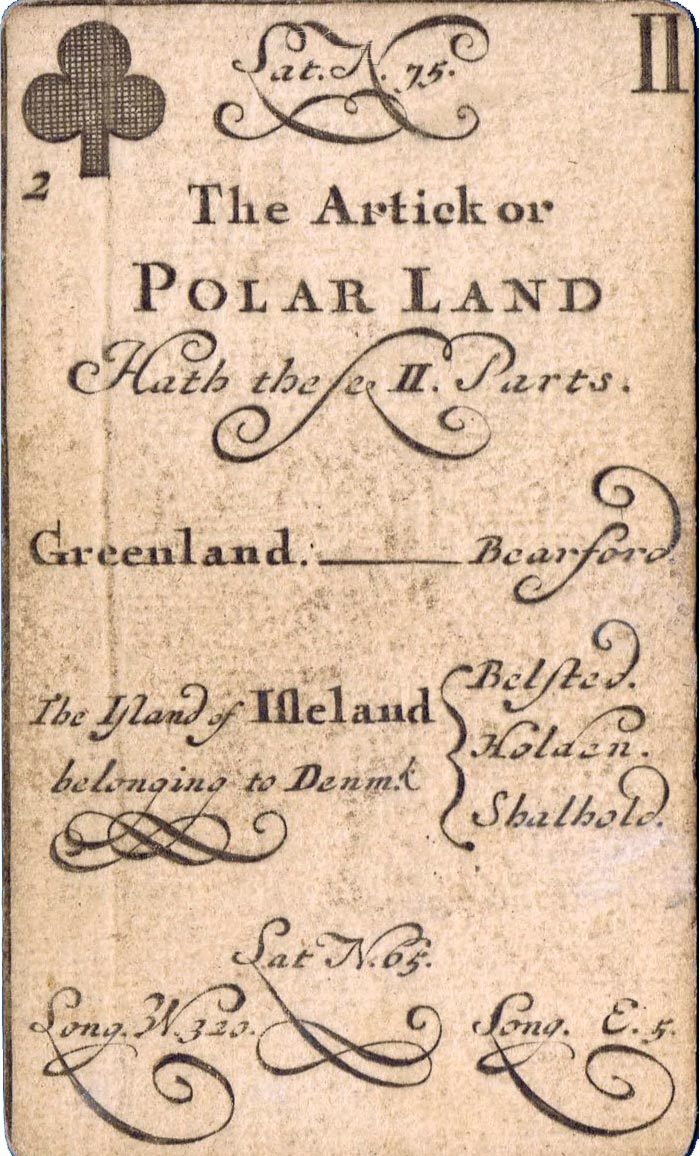 Lat. N. 75.
II
2
The Artick or
POLAR LAND
Hath these II. Parts.
Greenland. Bearford
The Iſland of Iſleland
belonging to Denmk
Belſted.
Holden.
Shalhold.
Lat N. 65.
Long. W. 320.
Long. E. 5.